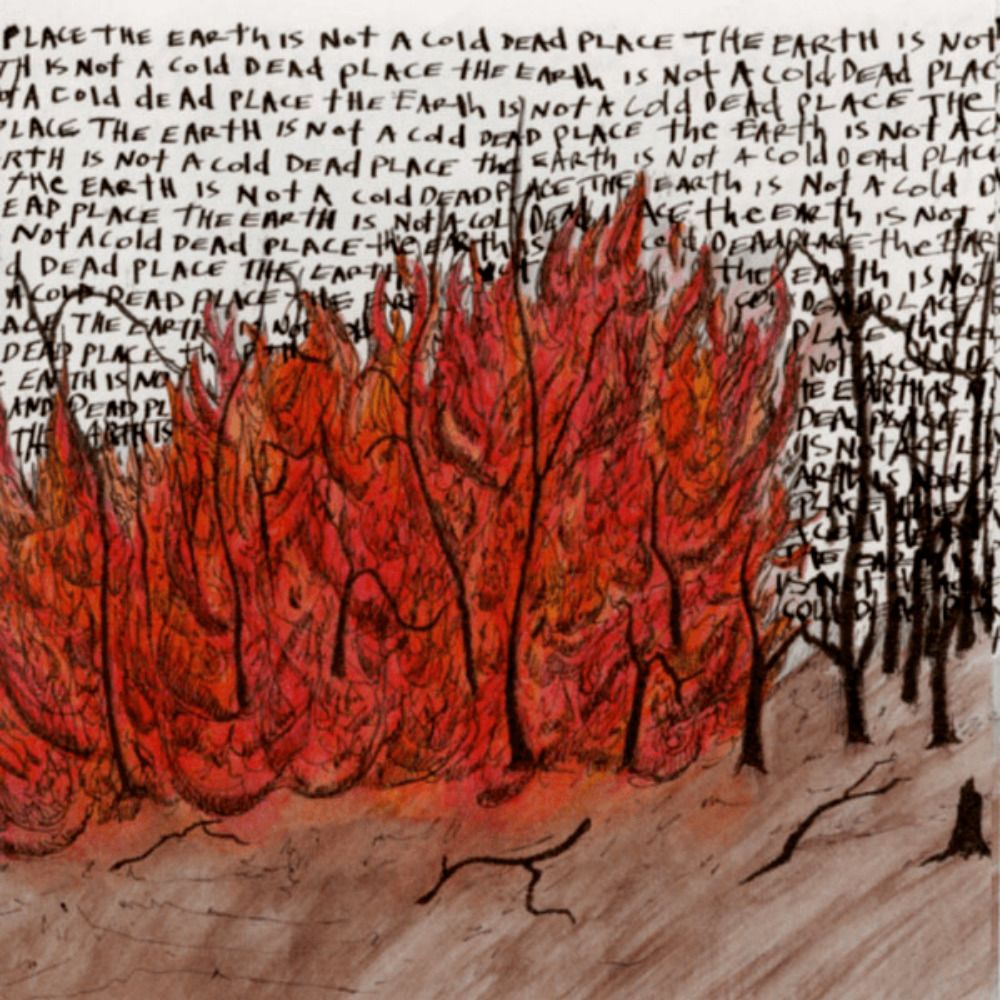 PLACE THE EARTH IS Not A Cold DEAD PLACE THE EARTH IS Not
TH IS Not A Cold DEAD PLACE tHE EARth IS Not A Cold DEAD PLAC
A Cold dEAd PLACE tHE EARth IS Not A Cold DEAD PLACE THE
PLACE THE EARTH IS Not A Cold DEAD PLACE the EARth IS Not A
RTH IS Not A Cold DEAD PLACE the EARth IS Not A Cold DEAd PLAC
THE EARTH IS Not A Cold DEAD PLACE THE EARth IS Not A Cold D
EAD PLACE THE EARTH IS Not A COL DEAd LACE the EARth IS Not
Not A Cold DEAd PLACE the EARth IS DEAd PLACE the EAR
d DEAd PLACE THE EARTH Not the EARth IS No
A COLD READ PLACE THE EAR DEAD PLACE
ACE THE EARTH IS Not PLACE the
DEAD PLACE Th Not A Cold
EARTH IS No TE EARTH AS N
AND DEAD PL DEAD
THE ARTH IS IS Not A COL
ARTH IS Not
PLACE
A COLD
THE EA
IS NOT
COLD DEAD